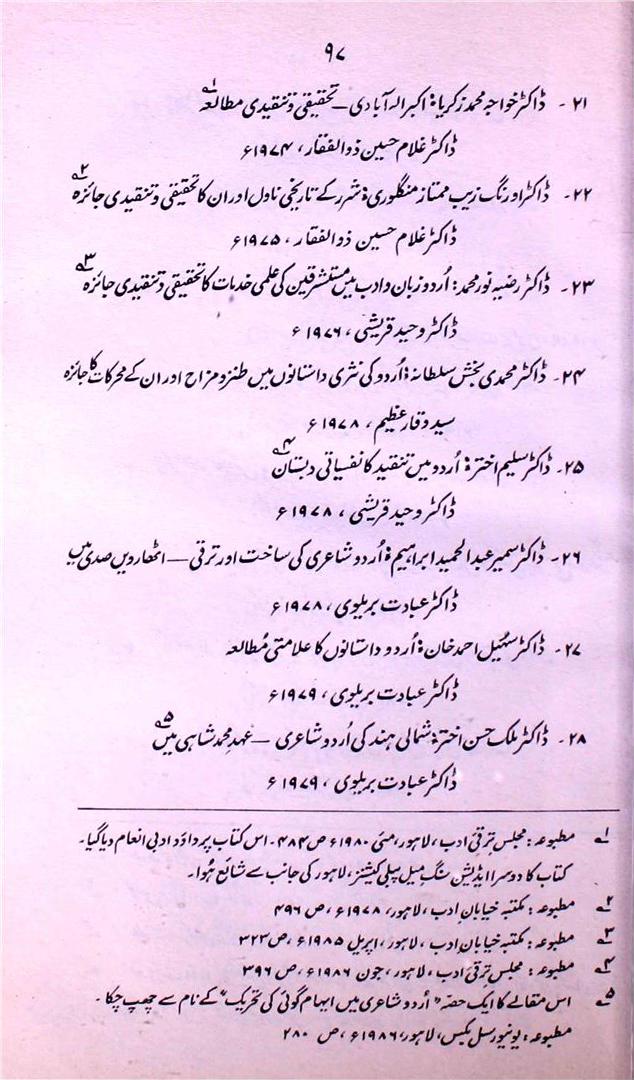 ۹۷
۲۱- ڈاکٹر خواجہ محمد زکریا: اکبر الہ آبادی — تحقیقی و تنقیدی مطالعہ ۱؎
ڈاکٹر غلام حسین ذوالفقار، ۱۹۷۴ء
۲۲- ڈاکٹر اورنگ زیب ممتاز منگلوری: شرر کے تاریخی ناول اور ان کا تحقیقی و تنقیدی جائزہ ۲؎
ڈاکٹر غلام حسین ذوالفقار، ۱۹۷۵ء
۲۳- ڈاکٹر رضیہ نور محمد: اُردو زبان و ادب میں مستشرقین کی علمی خدمات کا تحقیقی و تنقیدی جائزہ ۳؎
ڈاکٹر وحید قریشی، ۱۹۷۶ء
۲۴- ڈاکٹر محمدی بخش سلطانہ: اُردو کی نثری داستانوں میں طنز و مزاح اور ان کے محرکات کا جائزہ
سید وقار عظیم، ۱۹۷۸ء
۲۵- ڈاکٹر سلیم اختر: اُردو میں تنقید کا نفسیاتی دبستان ۴؎
ڈاکٹر وحید قریشی، ۱۹۷۸ء
۲۶- ڈاکٹر سمیر عبدالحمید ابراہیم: اُردو شاعری کی ساخت اور ترقی — اٹھارویں صدی میں
ڈاکٹر عبادت بریلوی، ۱۹۷۸ء
۲۷- ڈاکٹر سہیل احمد خان: اُردو داستانوں کا علامتی مُطالعہ
ڈاکٹر عبادت بریلوی، ۱۹۷۹ء
۲۸- ڈاکٹر ملک حسن اختر: شمالی ہند کی اُردو شاعری — عہدِ محمد شاہی میں ۵؎
ڈاکٹر عبادت بریلوی، ۱۹۷۹ء
۱؎ مطبوعہ: مجلس ترقیٔ ادب، لاہور، مئی ۱۹۸۰ء ص ۴۸۴- اس کتاب پر داؤد ادبی انعام دیا گیا۔
کتاب کا دوسرا ایڈیشن سنگِ میل پبلی کیشنز، لاہور کی جانب سے شائع ہُوا۔
۲؎ مطبوعہ: مکتبہ خیابانِ ادب، لاہور، ۱۹۷۸ء، ص ۴۹۶
۳؎ مطبوعہ: مکتبہ خیابانِ ادب، لاہور، اپریل ۱۹۸۵ء، ص ۳۲۳
۴؎ مطبوعہ: مجلس ترقیٔ ادب، لاہور، جون ۱۹۸۶ء، ص ۳۹۶
۵؎ اس مقالے کا ایک حصّہ "اُردو شاعری میں ایہام گوئی کی تحریک" کے نام سے چھپ چکا۔
مطبوعہ: یونیورسل بکس، لاہور، ۱۹۸۶ء، ص ۲۸۰